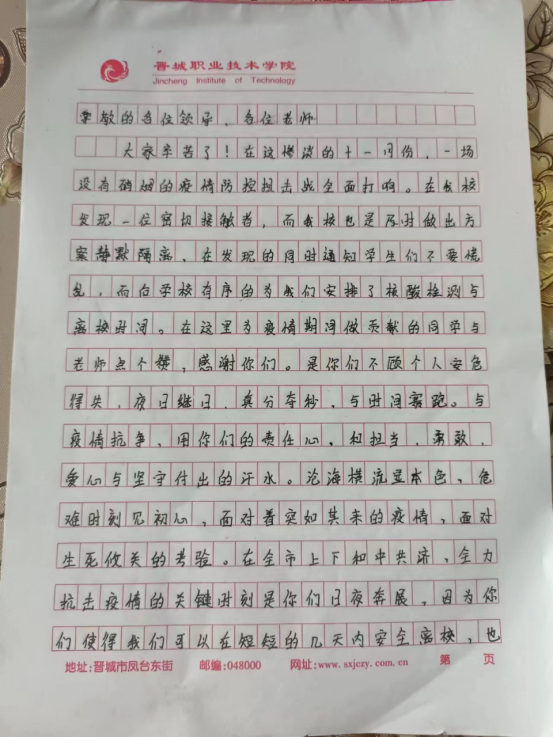 晋城职业技术学院
Jincheng Institute of Technology
尊敬的各位领导、各位老师
大家辛苦了！在这惨淡的十一月份，一场
没有硝烟的疫情防控狙击战全面打响。在我校
发现一位密切接触者，而我校也是及时做出方
案静默隔离、在发现的同时通知学生们不要慌
乱，而向学校有序的为我们安排了核酸检测与
离校时间。在这里为疫情期间做贡献的同学与
老师点个赞，感谢你们。是你们不顾个人安危
得失，夜日继日，争分夺秒，与时间赛跑。与
疫情抗争，用你们的责任心，和担当，勇敢，
爱心与坚守付出的汗水。沧海横流显本色，危
难时刻见初心，面对着突如其来的疫情，面对
生死攸关的考验。在全市上下和中共济，全力
抗击疫情的关键时刻是你们日夜奔展，因为你
们使得我们可以在短短的几天内安全离校，也
地址:晋城市凤台东街 邮编:048000 网址:www.sxjczy.com.cn 第 页